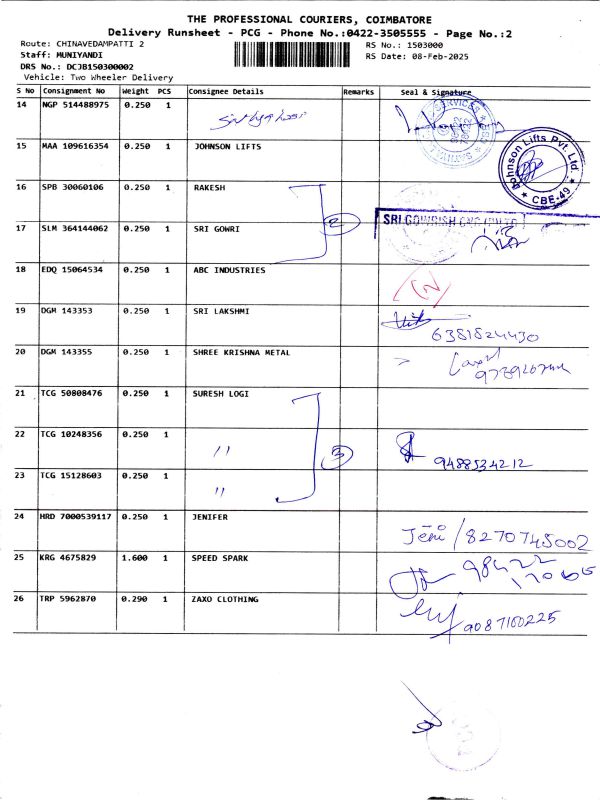 THE PROFESSIONAL COURIERS, COIMBATORE
Delivery Runsheet - PCG - Phone No.:0422-3505555 - Page No.:2
Route: CHINAVEDAMPATTI 2
RS No.: 1503000
Staff: MUNIYANDI
RS Date: 08-Feb-2025
DRS No.: DCJB150300002
Vehicle: Two Wheeler Delivery
S No Consignment No Weight PCS Consignee Details Remarks Seal & Signature
14 NGP 514488975 0.250 1
15 MAA 109616354 0.250 1 JOHNSON LIFTS
Johnson Lifts Pvt. Ltd.
★ CBE-49 ★
16 SPB 30060106 0.250 1 RAKESH
2
17 SLM 364144062 0.250 1 SRI GOWRI
18 EDQ 15064534 0.250 1 ABC INDUSTRIES
19 DGM 143353 0.250 1 SRI LAKSHMI
6381824430
20 DGM 143355 0.250 1 SHREE KRISHNA METAL
21 TCG 50808476 0.250 1 SURESH LOGI
22 TCG 10248356 0.250 1 〃 3
9488534212
23 TCG 15128603 0.250 1 〃
24 HRD 7000539117 0.250 1 JENIFER
Jeni / 8270745002
25 KRG 4675829 1.600 1 SPEED SPARK
98422
26 TRP 5962870 0.290 1 ZAXO CLOTHING
9087100225